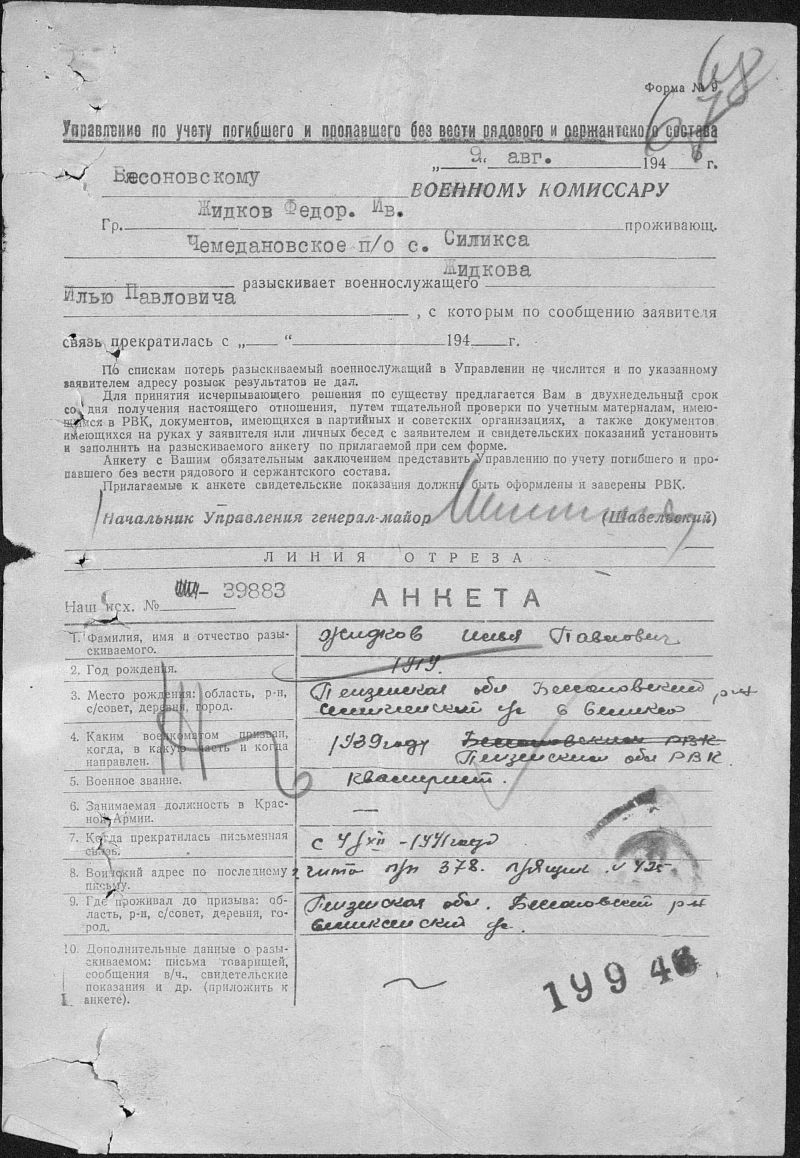 Форма № 9
68
67
Управление по учету погибшего и пропавшего без вести рядового и сержантского состава
„ 9 “ авг. 1946 г.
Бессоновскому ВОЕННОМУ КОМИССАРУ
Гр. Жидков Федор. Ив. проживающ.
Чемедановское п/о с. Силикса
разыскивает военнослужащего Жидкова
Илью Павловича , с которым по сообщению заявителя
связь прекратилась с „ “ 194 г.
По спискам потерь разыскиваемый военнослужащий в Управлении не числится и по указанному
заявителем адресу розыск результатов не дал.
Для принятия исчерпывающего решения по существу предлагается Вам в двухнедельный срок
со дня получения настоящего отношения, путем тщательной проверки по учетным материалам, имею-
щимся в РВК, документов, имеющихся в партийных и советских организациях, а также документов
имеющихся на руках у заявителя или личных бесед с заявителем и свидетельских показаний установить
и заполнить на разыскиваемого анкету по прилагаемой при сем форме.
Анкету с Вашим обязательным заключением представить Управлению по учету погибшего и про-
павшего без вести рядового и сержантского состава.
Прилагаемые к анкете свидетельские показания должны быть оформлены и заверены РВК.
Начальник Управления генерал-майор (Шавельский)
ЛИНИЯ ОТРЕЗА
Наш исх. № - 39883 АНКЕТА
1. Фамилия, имя и отчество разы- Жидков Илья Павлович
скиваемого.
2. Год рождения. 1919.
3. Место рождения: область, р-н, Пензенская обл Бессоновский р-н
с/совет, деревня, город.
4. Каким военкоматом призван, 1939 году Бессоновским РВК
когда, в какую часть и когда Пензенской обл РВК.
направлен.
5. Военное звание.
6. Занимаемая должность в Крас- —
ной Армии.
7. Когда прекратилась письменная с 4/XII - 1941 года
связь.
8. Воинский адрес по последнему г. Чита п/п 378. п/ящик № 425
письму.
9. Где проживал до призыва: об- Пензенская обл. Бессоновский р-н
ласть, р-н, с/совет, деревня, го-
род.
10. Дополнительные данные о разы-
скиваемом: письма товарищей,
сообщения в/ч., свидетельские
показания и др. (приложить к
анкете).